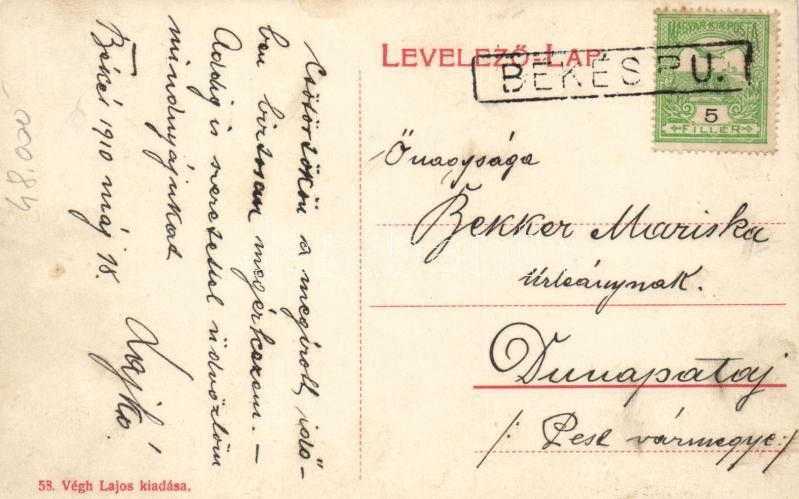 LEVELEZŐ-LAP.
BÉKÉS P.U.
MAGYAR KIR. POSTA
5
FILLÉR
Csütörtökön a megirott idő-
ben biztosan megérkezem. —
Addig is szeretettel üdvözlöm
mindnyájukat
Békés 1910 máj 18.
Lajkó.
Őnagysága
Bekker Mariska
úrleánynak.
Dunapataj
/: Pest vármegye:/
48.000
58. Végh Lajos kiadása,